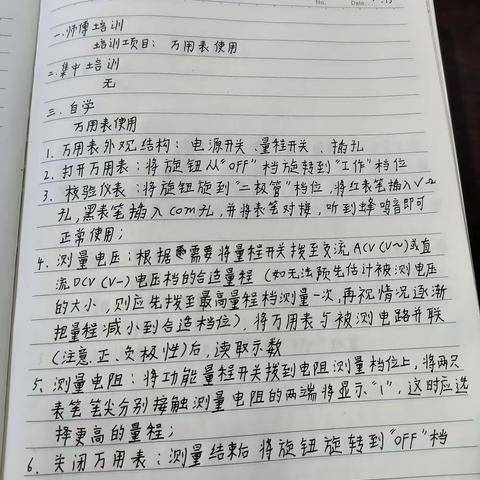 No. Date.
一.师傅培训
培训项目：万用表使用
二.集中培训
无
三.自学
万用表使用
1.万用表外观结构：电源开关、量程开关、插孔
2.打开万用表：将旋钮从“OFF”档旋转到“工作”档位
3.校验仪表：将旋钮旋到“二极管”档位，将红表笔插入V-Ω
孔，黑表笔插入com孔，并将表笔对接，听到蜂鸣音即可
正常使用；
4.测量电压：根据需要将量程开关拨至交流ACV(V~)或直
流DCV(V-)电压档的合适量程（如无法预先估计被测电压
的大小，则应先拨至最高量程档测量一次，再视情况逐渐
把量程减小到合适档位），将万用表与被测电路并联
(注意正、负极性)后，读取示数
5.测量电阻：将功能量程开关拨到电阻测量档位上，将两只
表笔笔尖分别接触测量电阻的两端将显示“1”，这时应选
择更高的量程；
6.关闭万用表：测量结束后将旋钮旋转到“OFF”档